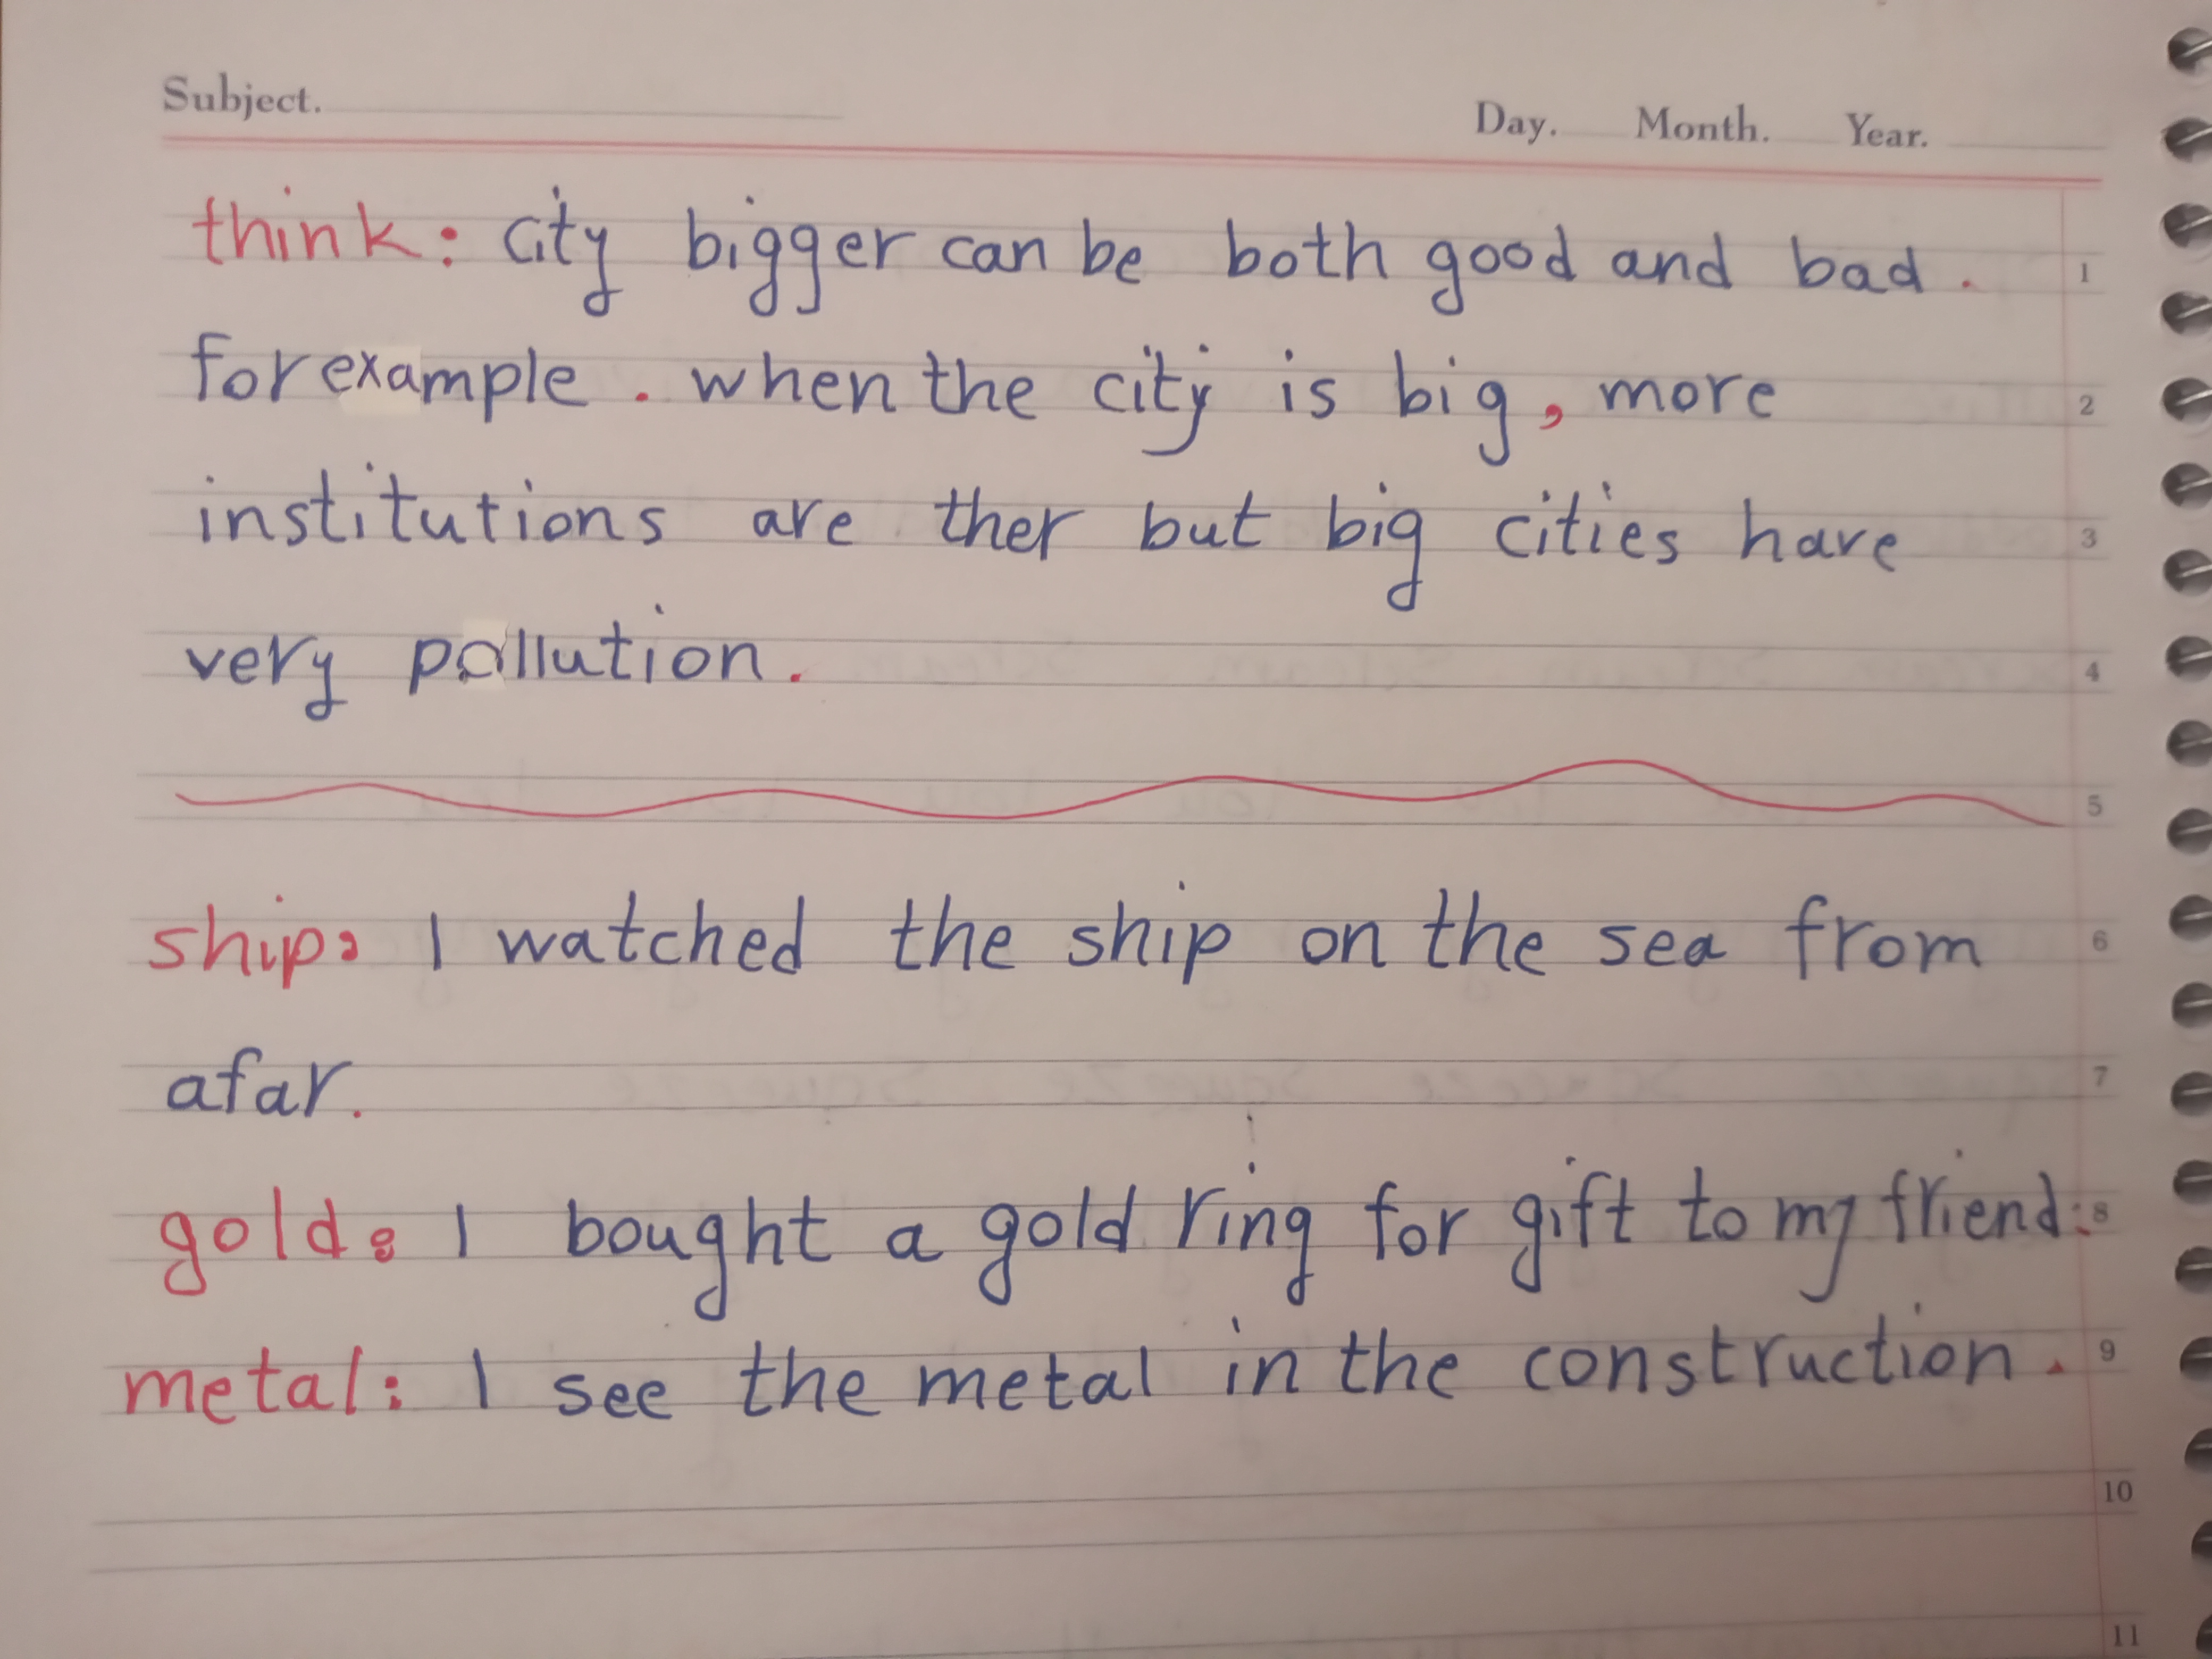 Subject.
Day. Month. Year.
think: city bigger can be both good and bad. 1
for example. when the city is big, more 2
institutions are ther but big cities have 3
very pollution. 4
5
ship: I watched the ship on the sea from 6
afar. 7
gold: I bought a gold ring for gift to my friend. 8
metal: I see the metal in the construction. 9
10
11